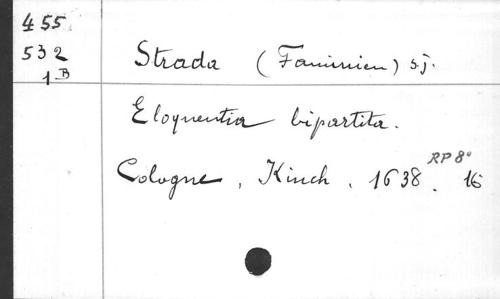 455
532
1B
Strada (Faminien) s.j.
Eloquentia bipartita.
RP 8°
Cologne, Kinch, 1638. 16